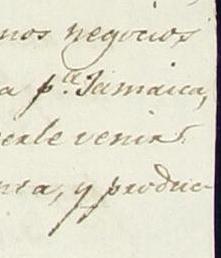 nos negocios
a p.ª Jamaica,
erle venir
, y produc-